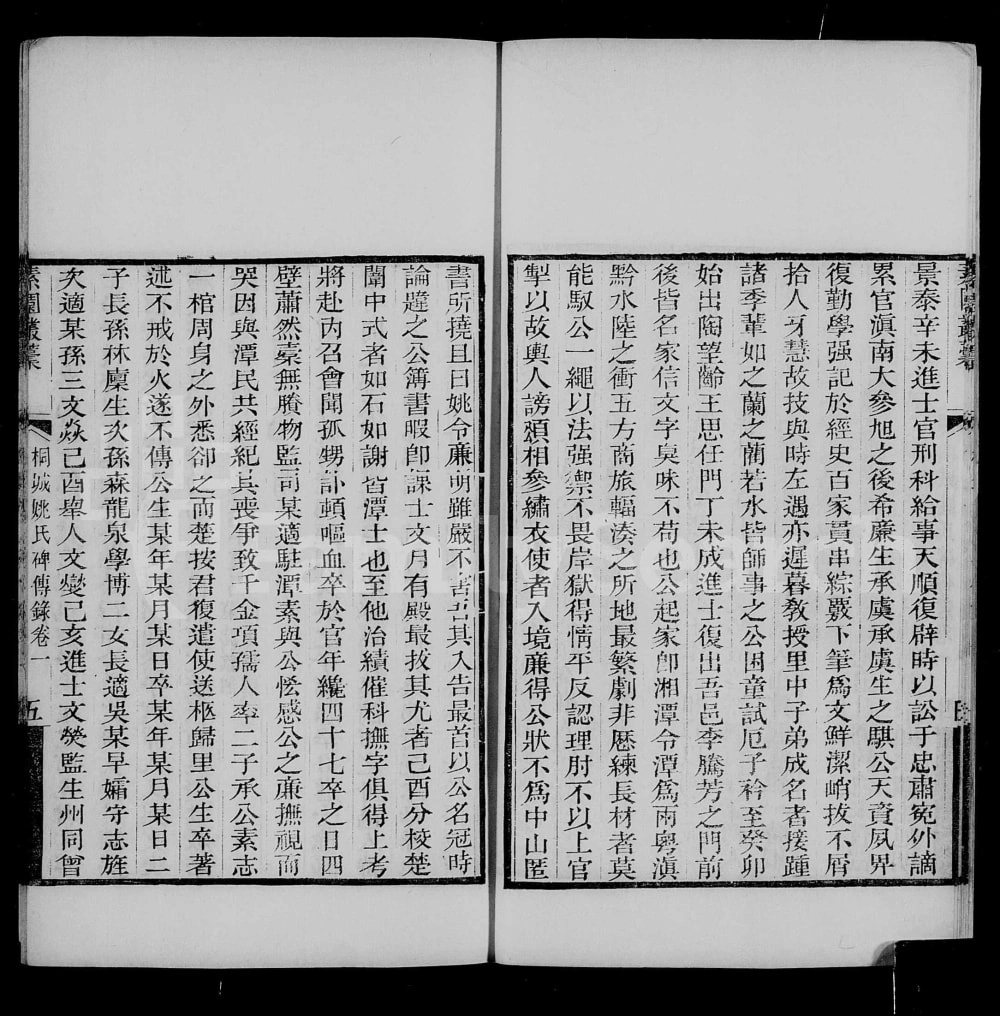 景泰辛未進士官刑科給事天順復辟時以訟于忠肅寃外謫
累官滇南大參旭之後希廉生承虞承虞生之騏公天資夙畀
復勤學强記於經史百家貫串綜覈下筆爲文鮮潔峭拔不屑
拾人牙慧故技與時左遇亦遲暮敎授里中子弟成名者接踵
諸季輩如之蘭之藺若水皆師事之公困童試厄子衿至癸卯
始出陶望齡王思任門丁未成進士復出吾邑李騰芳之門前
後皆名家信文字臭味不苟也公起家卽湘潭令潭爲兩粵滇
黔水陸之衝五方商旅輻湊之所地最繁劇非歷練長材者莫
能馭公一繩以法强禦不畏岸獄得情平反認理肘不以上官
掣以故輿人謗頌相參繡衣使者入境廉得公狀不爲中山匿
書所撓且曰姚令廉明雖嚴不苦其入告最首以公名冠時
論韙之公簿書暇卽課士文月有殿最拔其尤者己酉分校楚
闈中式者如石如謝皆潭士也至他治績催科撫字俱得上考
將赴内召會聞孤甥訃頓嘔血卒於官年纔四十七卒之日四
壁蕭然橐無賸物監司某適駐潭素與公恡感公之廉撫視而
哭因與潭民共經紀其喪爭致千金項孺人率二子承公素志
一棺周身之外悉卻之而楚按君復遣使送柩歸里公生卒著
述不戒於火遂不傳公生某年某月某日卒某年某月某日二
子長孫林廩生次孫森龍泉學博二女長適吳某早孀守志旌
次適某孫三文焱己酉舉人文燮己亥進士文熒監生州同曾
素園叢稾
桐城姚氏碑傳錄卷一
五